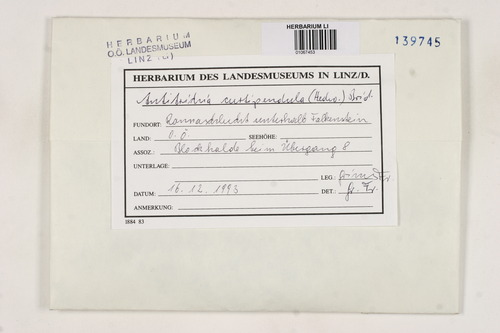 HERBARIUM
O.Ö. LANDESMUSEUM
LINZ
HERBARIUM LI
01067453
139745
HERBARIUM DES LANDESMUSEUMS IN LINZ/D.
Antitrichia curtipendula (Hedw.) Brid.
FUNDORT: Rannaschlucht unterhalb Falkenstein
LAND: O.Ö. SEEHÖHE:
ASSOZ.: Blockhalde beim Übergang 8
UNTERLAGE:
LEG.:
DATUM: 16.12.1993 DET.: Gr. Fr.
ANMERKUNG:
I884 83